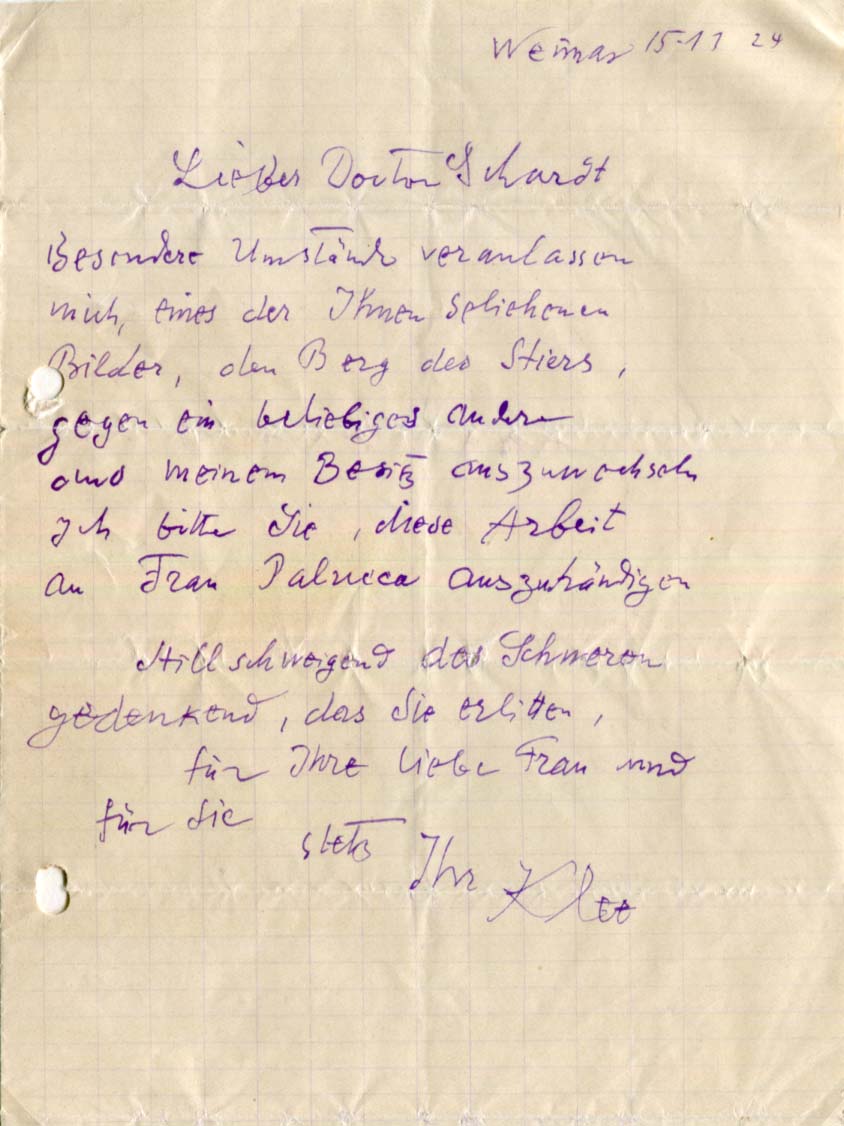 Weimar 15.11 24
Lieber Doctor Schardt
Besondere Umstände veranlassen
mich, eines der Ihnen geliehenen
Bilder, den Berg des Stiers,
gegen ein beliebiges andere
aus meinem Besitz auszuwechseln
Ich bitte Sie, diese Arbeit
an Frau Palucca auszuhändigen
Stillschweigend des Schweren
gedenkend, das Sie erlitten,
für Ihre liebe Frau und
für Sie
stets
Ihr Klee